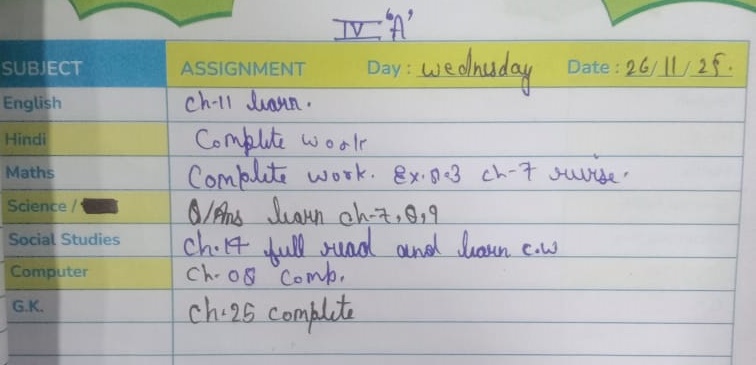 IV 'A'
SUBJECT ASSIGNMENT Day : Wednesday Date : 26/11/25.
English Ch-11 learn.
Hindi Complete work
Maths Complete work. Ex. 8.3 ch-7 revise.
Science / Q/Ans learn ch-7,8,9
Social Studies Ch.17 full read and learn c.w
Computer Ch-08 Comp.
G.K. Ch.25 complete